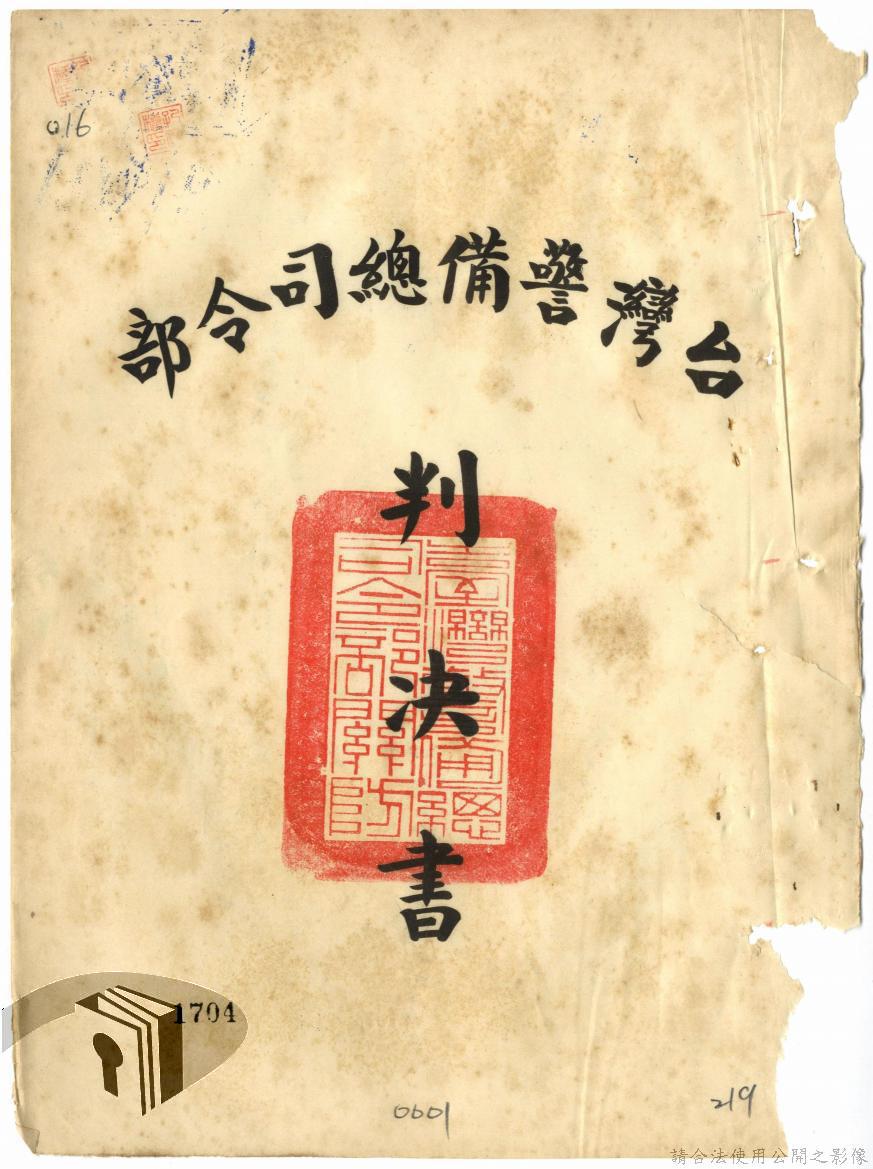 016
台灣警備總司令部
判
決
書
臺灣警備總
司令部關防
1704
0601
219
請合法使用公開之影像